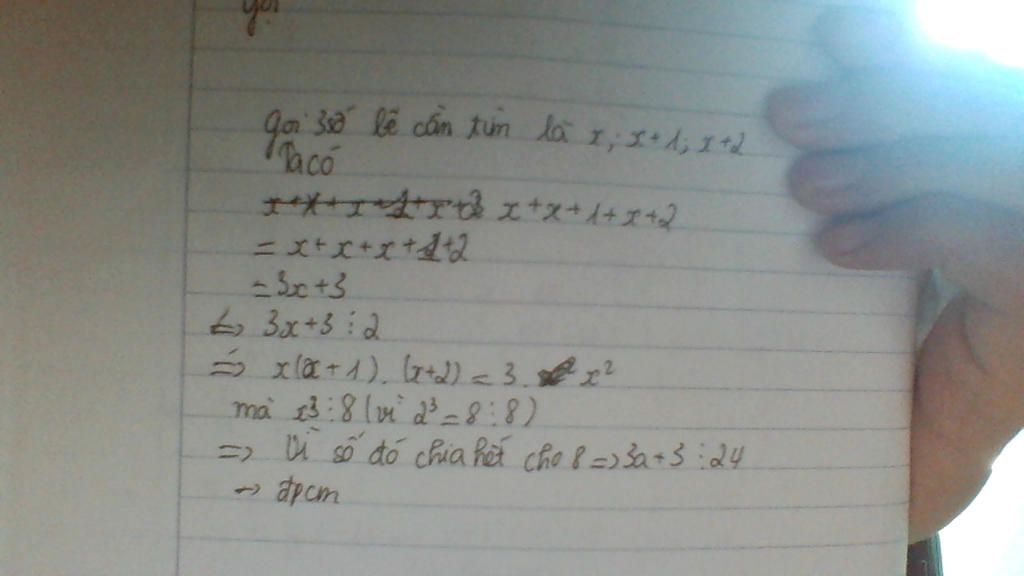 gọi
gọi 3 số lẽ cần tìm là x; x+1; x+2
Ta có
x+x+1+x+2
= x+x+x+1+2
= 3x+3
<=> 3x+3 ⋮ 2
=> x(x+1).(x+2) = 3. x²
mà x3 ⋮ 8 (vì 2³ = 8 ⋮ 8)
=> Vì số đó chia hết cho 8 => 3a+3 ⋮ 24
-> đpcm